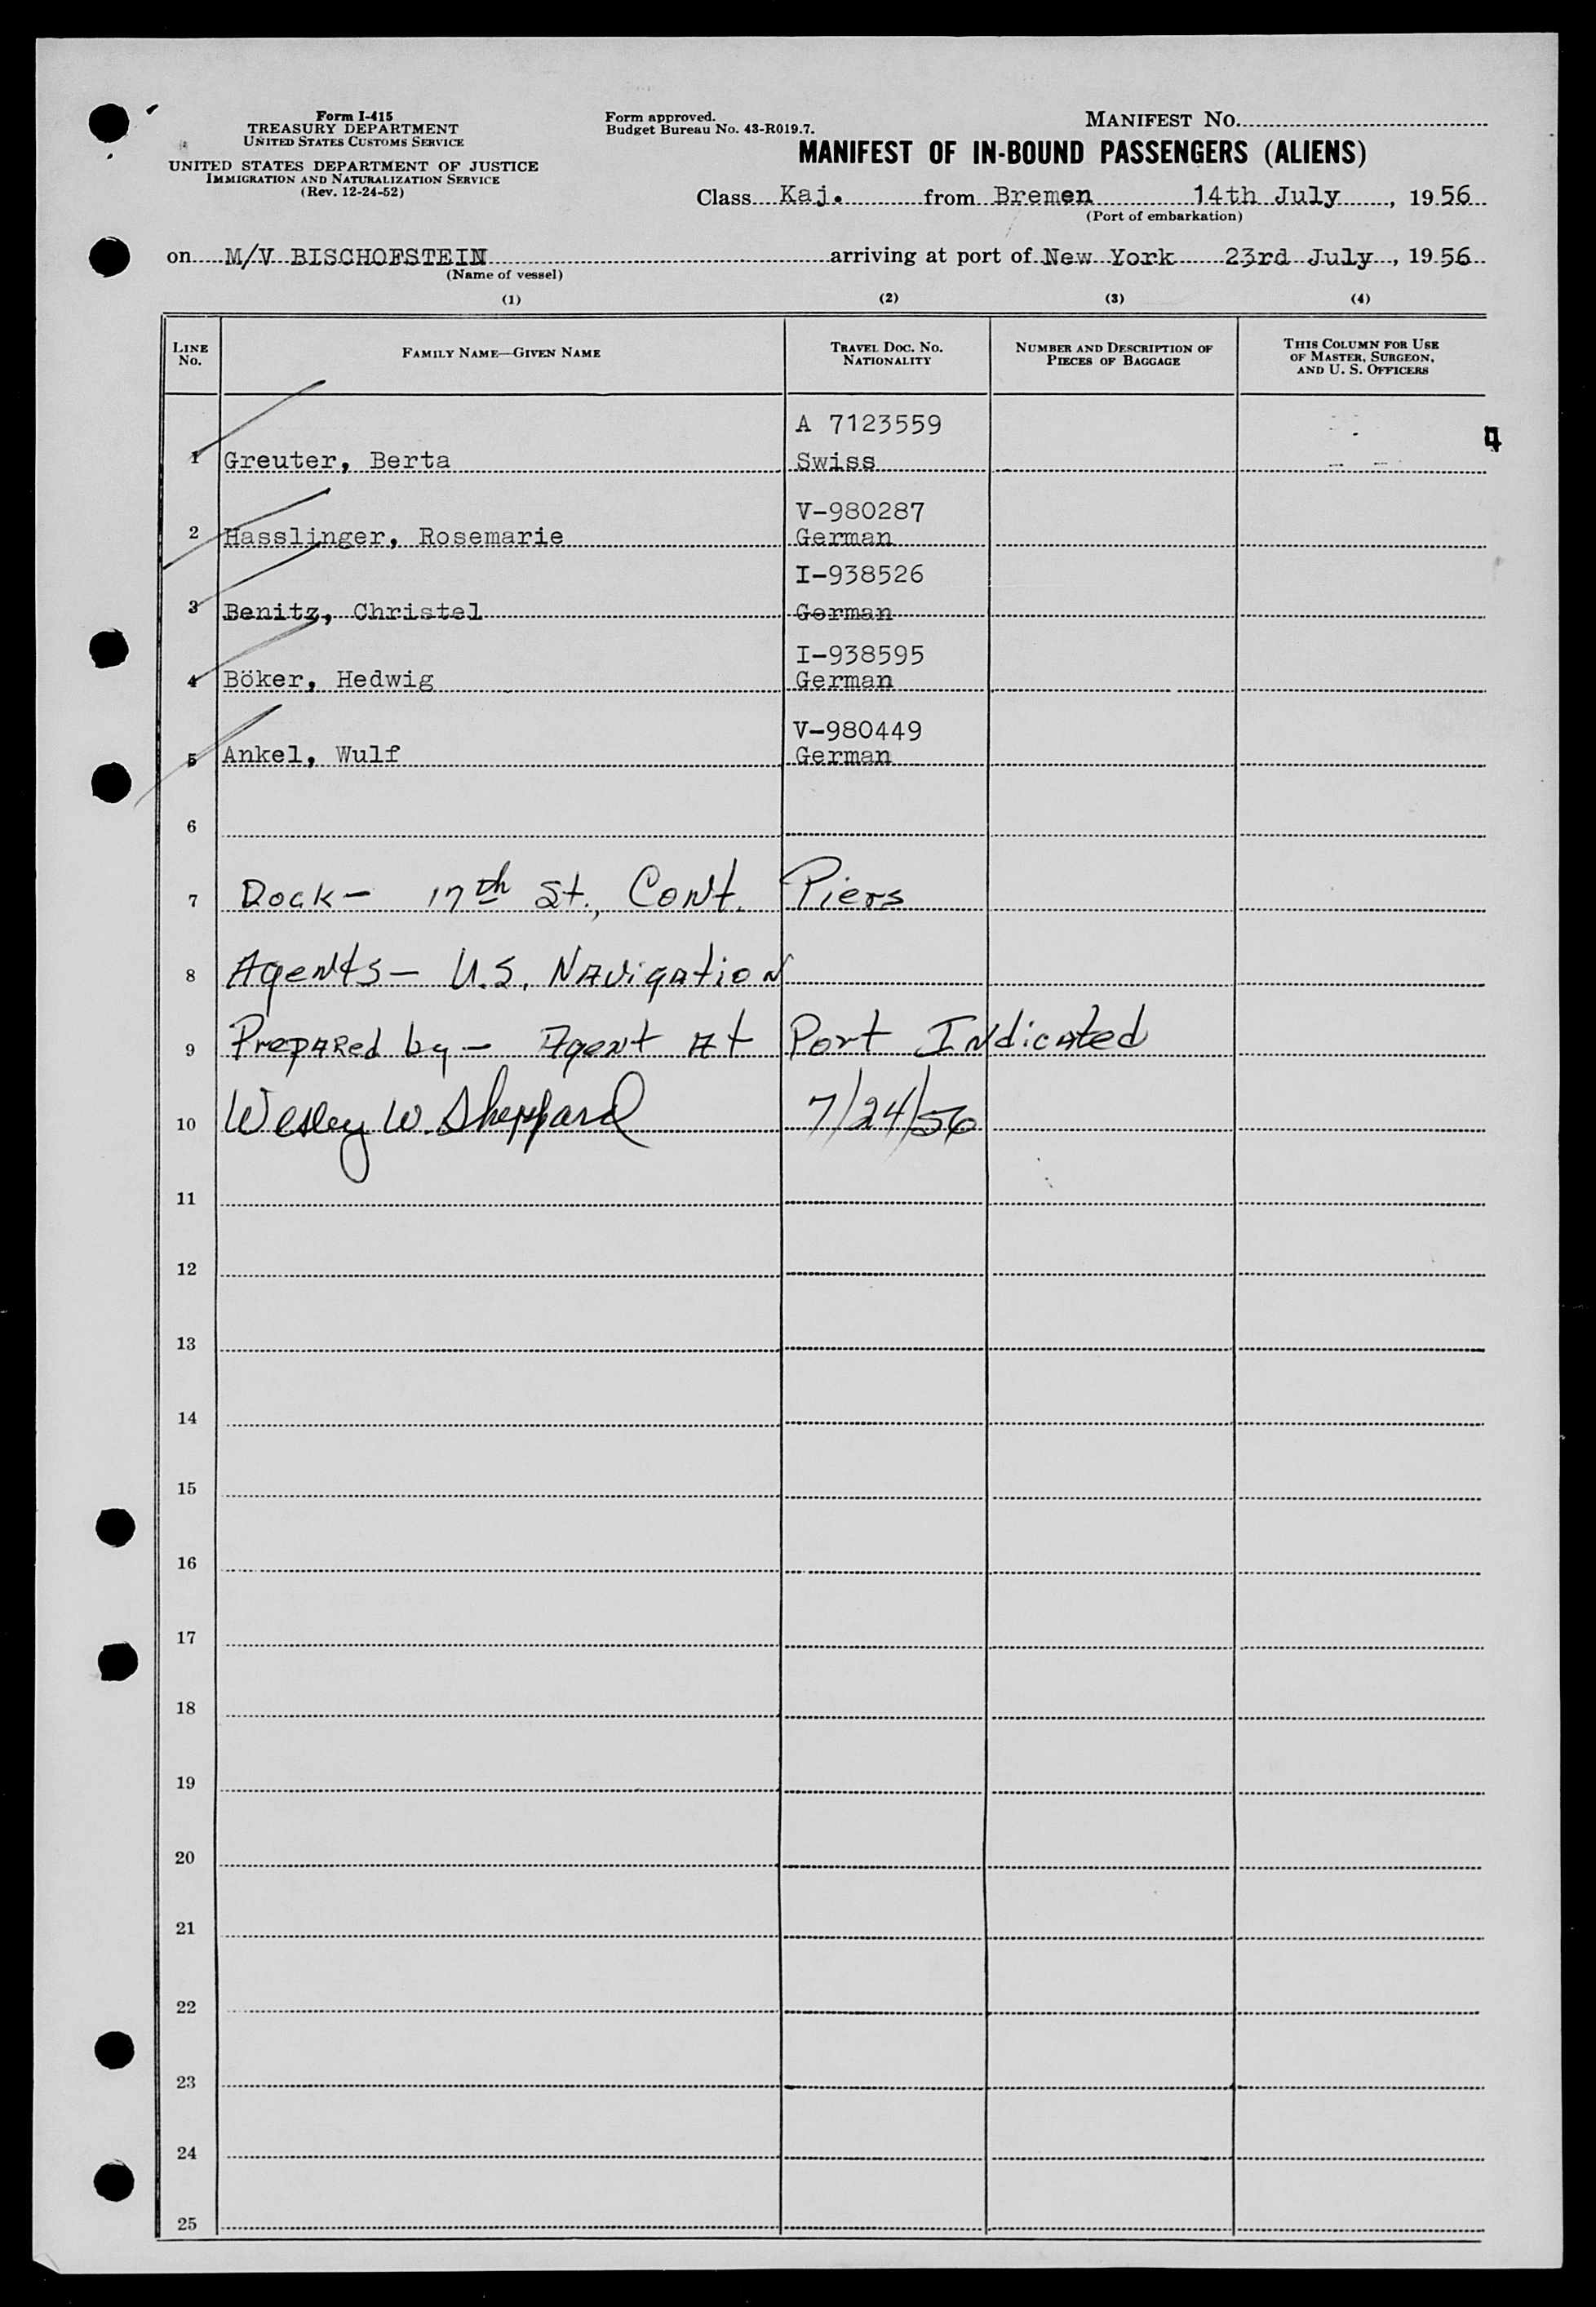 Form I-415
TREASURY DEPARTMENT
UNITED STATES CUSTOMS SERVICE
UNITED STATES DEPARTMENT OF JUSTICE
IMMIGRATION AND NATURALIZATION SERVICE
(Rev. 12-24-52)
Form approved.
Budget Bureau No. 43-R019.7.
MANIFEST NO.
MANIFEST OF IN-BOUND PASSENGERS (ALIENS)
Class Kaj. from Bremen 14th July, 1956
(Port of embarkation)
on M/V BISCHOFSTEIN arriving at port of New York 23rd July, 1956
(Name of vessel)
(1) (2) (3) (4)
LINE No. FAMILY NAME—GIVEN NAME TRAVEL DOC. NO. NATIONALITY NUMBER AND DESCRIPTION OF PIECES OF BAGGAGE THIS COLUMN FOR USE OF MASTER, SURGEON, AND U. S. OFFICERS
A 7123559
1 Greuter, Berta Swiss
V-980287
2 Hasslinger, Rosemarie German
I-938526
3 Benitz, Christel German
I-938595
4 Böker, Hedwig German
V-980449
5 Ankel, Wulf German
6
7 Dock- 17th St., Cont. Piers
8 Agents- U.S. Navigation
9 Prepared by- Agent At Port Indicated
10 Wesley W. Sheppard 7/24/56
11
12
13
14
15
16
17
18
19
20
21
22
23
24
25